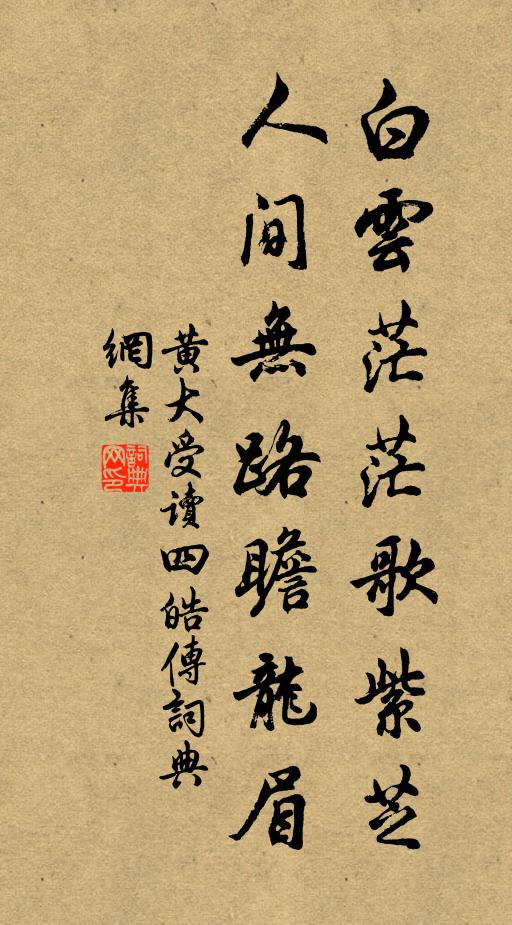 白雲茫茫歌紫芝
人间無路瞻龍眉
黄大受讀四皓傳詞典
網集
詞典網印